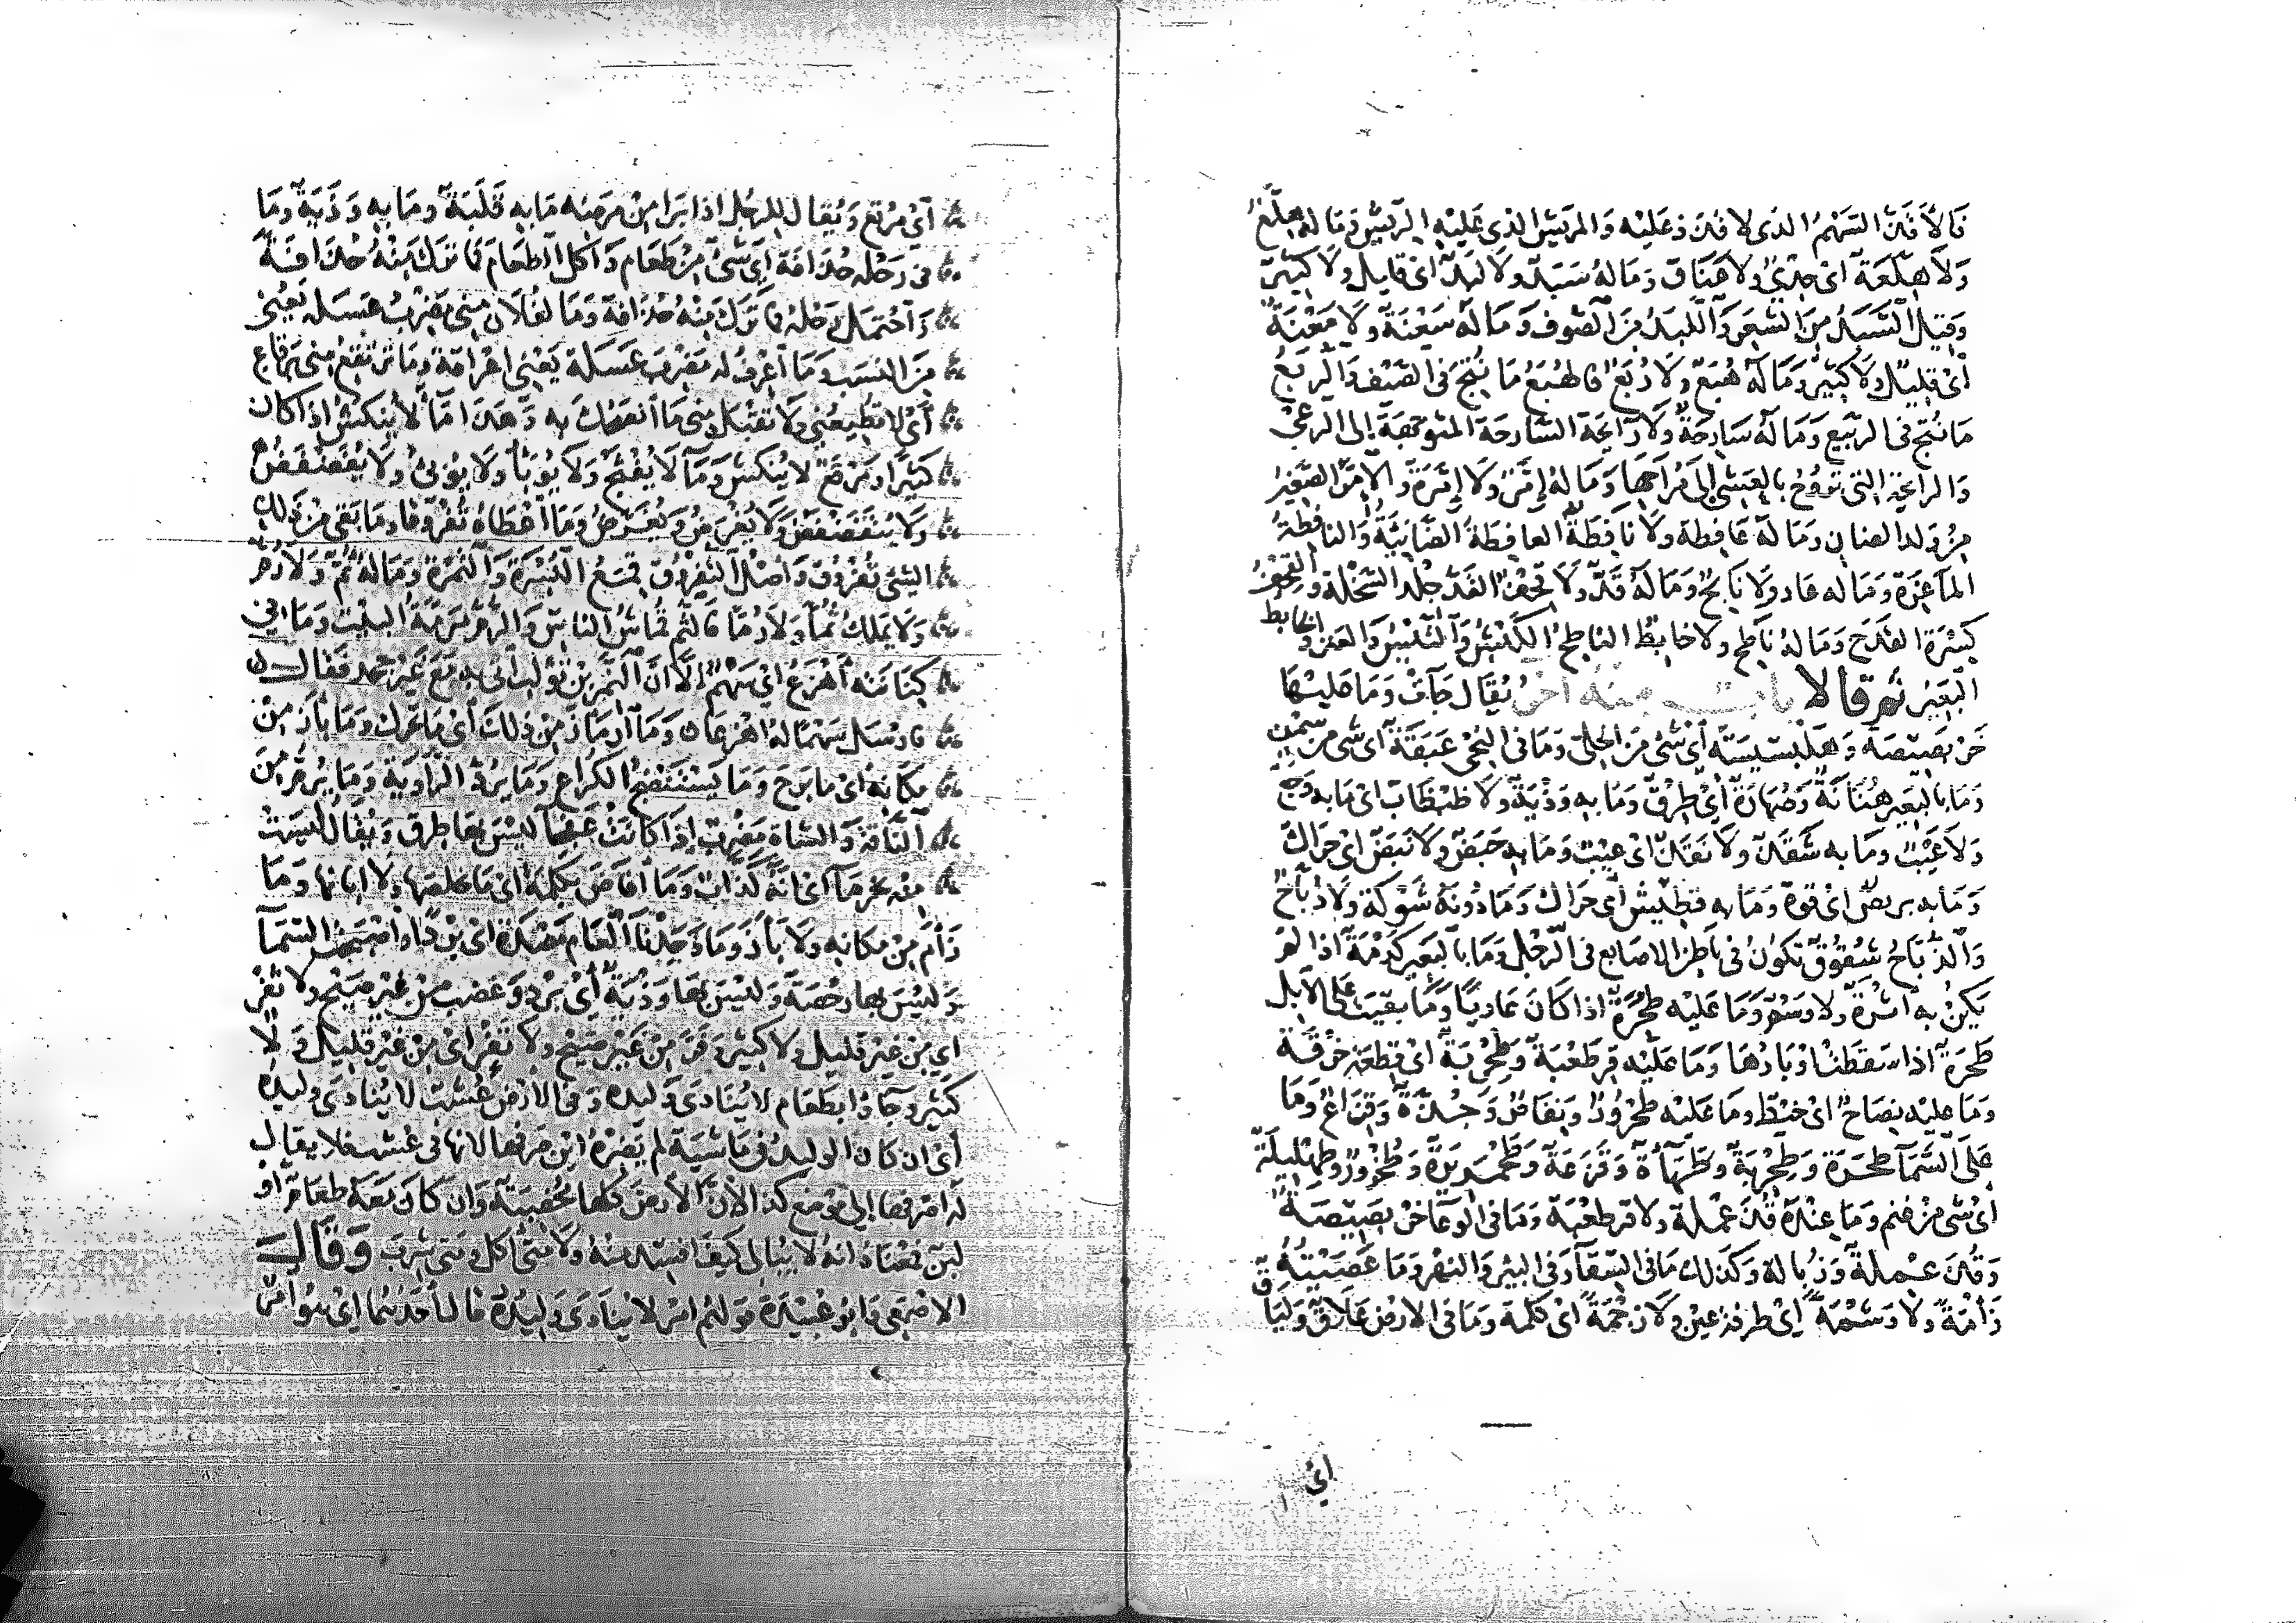 فَالأَقَذّ السّهْمُ الذى لا قُذَذَ عَلَيْه وَالمَرِيْش الذى عَليْهِ الرِيْش وَمَا له هِلَّعٌ
وَلاَ هِلّعَةٌ اىْ جَدْيٌ ولا عَنَاق وَمَا لهُ سَبَدٌ ولا لَبَدٌ اىْ قليل ولا كَثِيْرٌ
وَقيلَ السَّبَدُ مِنَ الشعَرِ وَاللّبَدُ مِنَ الصّوف وَمَا لَهُ سَعْنَةٌ ولا مَعْنَةٌ
أىْ قلِيلٌ ولا كَثِيْرٌ وَمَا لَهُ هُبَعٌ ولا رُبَعٌ فالهُبَعُ مَا نُتجَ فى الصّيْف وَالرُبَعُ
مَا نُتجَ فى الرّبيع وَمَا لَهُ سَارِحَةٌ ولا رَائحَة السّارحَة المتوجّهَة إلى الرعْى
وَالرائحة التى تَرُوْحُ بالعَشى إلى مُرَاحِهَا وَمَا لَهُ إمّرٌ ولا إمّرَةٌ وَالامّر الصَّغِيْر
مِنْ وَلد الضانِ وَمَا لَهُ عَافِطَة ولا نافِطَةٌ العافِطَة الضَّانيَةُ وَالنافِطَةُ
المَاعِزَة وَمَا له عَاوٍ ولا نَابحٌ وَمَا لَهُ قَدٌّ ولا قِحْفٌ القَدّ جلْد السّخْلَة والقِحْفُ
كِسْرَة القَدَح وَمَا لَهُ ناطِحٌ ولا خابِطٌ الناطِحُ الكَبْشُ وَالتَّيْسُ وَالعَنز والخَابط
البَعِيْر ثمّ قالا بابٌ منه اخَرُ يُقَال جَآتْ وَمَا عَليْهَا
خَرْبَصِيْصَة وَهَلْبَسيْسَة أىْ شَىْ مِنَ الحلىّ وَمَا فى النِحْى عَبَقَةٌ اىْ شى مِنْ سَمْنٍ
وَمَا بالبَعِيْر هُنَانَةٌ وَصُهَارَةٌ أىْ طِرْقٌ وَمَا بهِ وَذْيَةٌ ولا ظَبْظَابٌ اىْ مَا بهِ وَجَعٌ
ولا عَيْبٌ ومَا بهِ شَقَذٌ ولا نَقَذٌ اىْ عَيْبٌ وَمَا بهِ حَبَضٌ ولا نَبَضٌ اىْ حَرَاكٌ
وَمَا به بريصٌ اىْ قوةٌ وَمَا بهِ نَطِيْشٌ أى حَرَاك وَمَا دُونَهُ شَوْكَة ولا ذُبَّاحٌ
وَالذُبَّاحُ شُقُوقٌ تكونُ فى باطِن الاصَابع فى الرِّجْل وَمَا بالبَعِيْر كَدْمَةٌ اذا لمْ
يَكنْ به اثْرَةٌ ولا وَسْمٌ وَمَا عَليْه طُحْرَةٌ اذا كَانَ عَاريًا وَمَا بقيَت على الابل
طَحَرَة اذا سَقَطَتْ اوْبَارُهَا وَمَا عَلَيْه قِرطَعْبَة وَطِحْرِبَة اىْ قِطعَة خِرْقَة
وَمَا عليه نِصَاحٌ اىْ خيْط ومَا عَليْه طُحْرُورٌ وَنِفَاضٌ وَجِدَّةٌ وَقِزَاعٌ وَمَا
عَلَى السّمآ طَحَرَة وَطِحْرِبَةٌ وَطَهَاءَة وَقَزَعَة وَطَحْمَرِيْرَةٌ وَطُخْرُورٌ وَطِهْلِيلَةٌ
اىْ شَى مِنْ غَيم وَمَا عِنْدَهُ قُذَعْمِلَة ولا قرطَعْبَة وَمَا فى الوِعَا خَرْبَصِيْصَةٌ
وَقُذَعْمِلَةٌ وَزُبَالة وَكَذلك مَا فى السّقآ وَفى البئر وَالنهْر وَمَا عَصَيْتُهُ
زَأمَةً ولا وَشْمَةً اىْ طرفَةَ عَيْن ولا زَجْمَة اىْ كَلمة وَمَا فى الارْض عَلاَقٌ وَلَبَاقٌ
اىْ
أىْ مَرْتَع وَيُقَال للرجُل اذا برا مِنْ مَرَضِه مَا بهِ قَلَبَةٌ ومَا به وَذْيَةٌ وَمَا
فى رَحْله حُذَافَة اى شَىْ مِنْ طَعَام وَاَكَلَ الطعَامَ فَمَا تَرَكَ مِنْهُ حُذَافَةً
وَاحْتَمَلَ رَحْلَهُ فمَا تَرَكَ مِنْهُ حُذَافَة وَمَا لفُلاَن مِنى مَضْرِبُ عَسَلَة يَعْنى
مِنَ النسَب وَمَا أعْرِفُ لهُ مَضْربَ عَسَلة يَعْنى اعْرَاقَهُ وَمَا تَرْتَقِعُ مِنى بِرَقَاع
أىْ لا تُطِيعُنى ولا تقْبَل مِنى مَا أنصَحُكَ به وَهَذا مَآءٌ لا يُنْكَشُ اذا كان
كَثِيْرًا وَمَرْتَعٌ لا يُنْكَش وَمَآ لا يُفْثَجُ ولا يُوبَأ ولا يُؤبىُ ولا يُغَضْغَضُ
ولا يُتَغَضْغَض ولا يُغْرَضُ ويُغَرَّضُ وَمَا اعْطَاهُ ثُفْروقا وَمَا بَقى مِنْ ذَلك
الشى ثُفْروق وَأصْل الثُفْروُق قِمَعُ البُسْرَة وَالتّمْرَة وَمَا لَهُ ثُمٌّ ولا رُمٌّ
ولا يَمْلك ثُمًّا ولا رُمًّا فَالثُّم قُمَاش الناس وَالرُّم مَرَمَّةُ البَيْت وَمَا فى
كِنَانَته أهْزَعُ اىْ سَهْمٌ إلاّ انَّ النّمِر بْنَ تَوْلَب أتى به مَعَ غَيْر جحد فقال
فارْسَلَ سَهْمًا لهُ اهْزَعَا وَمَا أرْمَأزَّ مِنْ ذلكَ أىْ مَا تَحَرّك وَمَا بَأزَ مِنْ
مَكانِه أىْ مَا بَرحَ وَمَا يَسْتَنْضِجُ الكُرَاع وَمَا يَرُدُّ الرَّاويَة وَمَا يُرِمُّ مِنَ
النَّاقَة وَالشاة مَضْرَبٌ اذا كَانَتْ عَجْفَآ ليْسَ بهَا طِرق وَيُقَالُ لَيْسَتْ
مِنْه بحَزْمَآ اىْ انَّهُ كَذابٌ وَمَا أفَاصَ بكلمَة اىْ مَا خَلصَهَا ولا ابَانهَا وَمَا
رَامَ مِنْ مَكانِهِ ولا بَأزَ وَمَا وَجَدْنَا العَامَ مَصْدَةً اىْ بَرْدًا وَاصْبَحَت السّمآ
وَليْسَ بهَا وَخْصَةٌ وَليْسَ بهَا وَذْيَةٌ أىْ بَرْد وَغضب مِنْ غَيْر صَيْح ولا نَفْرٍ
اى مِنْ غيْر قليل ولا كَثِيْر وَفَرَّ مِنْ غَيْر صَيْح ولا نَفْرٍ اىْ مِنْ غيْر قَلِيل ولا
كَثير وجَاؤُا بطَعَام لا يُنَادَى وَلِيده وَفى الارْض عُشْبٌ لا يُنَادَى وليدهُ
أىْ ان كان الوليدُ فى مَاشيَة لم يَضِرْهُ ايْنَ صَرَفهَا لانها فى عُشْب فلا يقال
لهُ اصْرفهَا إلى مَوْضع كذا لأنّ الأرْضَ كلهَا مُخْصِبَة وَان كانَ مَعَهُ طعَامٌ أو
لَبَن فمعْنَاهُ انهُ لا يُبَالى كَيْفَ افسَدَ مِنْهُ ولا مَتى اَكَل وَمَتى شَربَ وَقَالَ
الاصْمَعى وَابُو عُبَيْدَة قولهُم امْرٌ لا يُنَادَى وَلِيدُهُ قال أحَدُهُمَا اىْ هُوَ امْرٌ